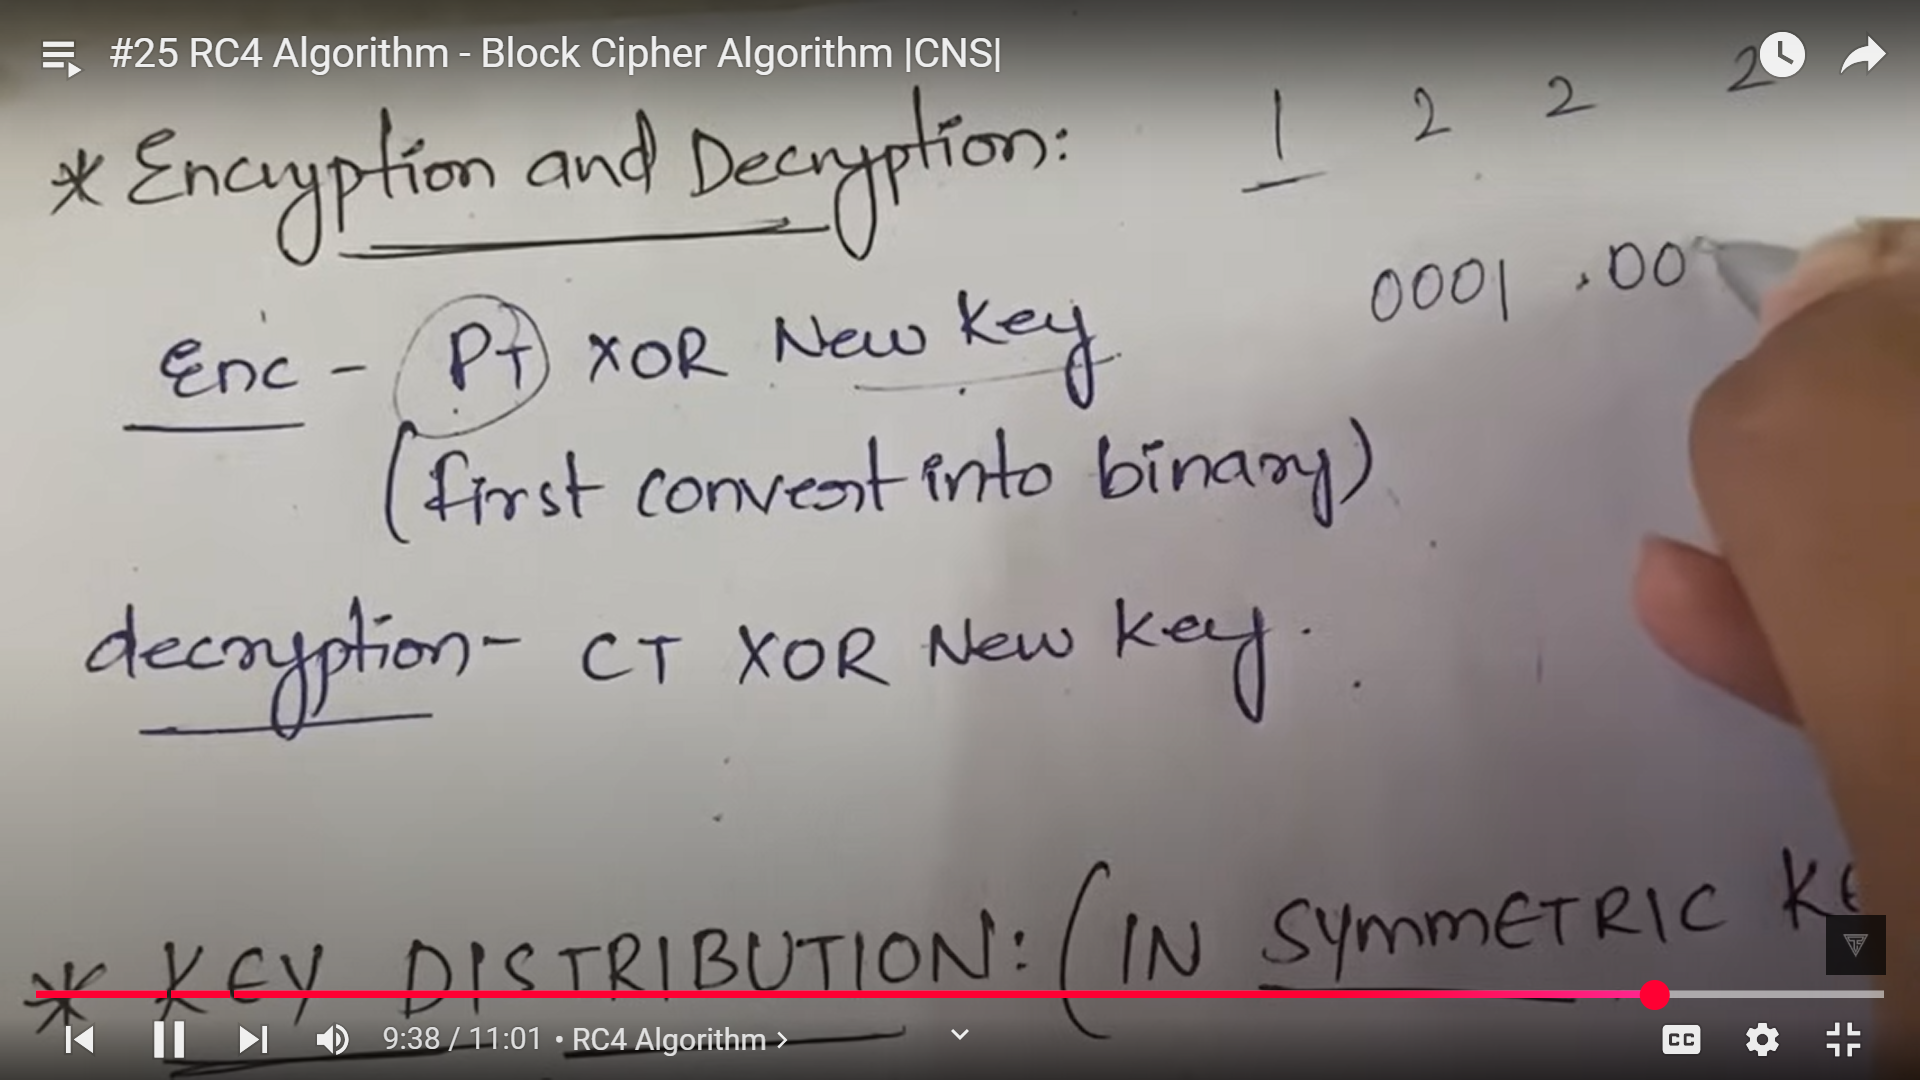 #25 RC4 Algorithm - Block Cipher Algorithm |CNS|
* Encryption and Decryption: 1 2 2 2
0001 .00
Enc - PT XOR New Key
(first convert into binary)
decryption - CT XOR New Key.
* KEY DISTRIBUTION: (IN SYMMETRIC KE
9:38 / 11:01 • RC4 Algorithm >
CC